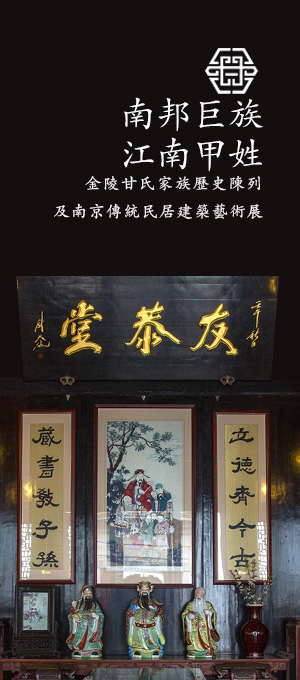 南邦巨族
江南甲姓
金陵甘氏家族歷史陳列
及南京傳統民居建築藝術展
友恭堂
立德齊今古
藏書教子孫